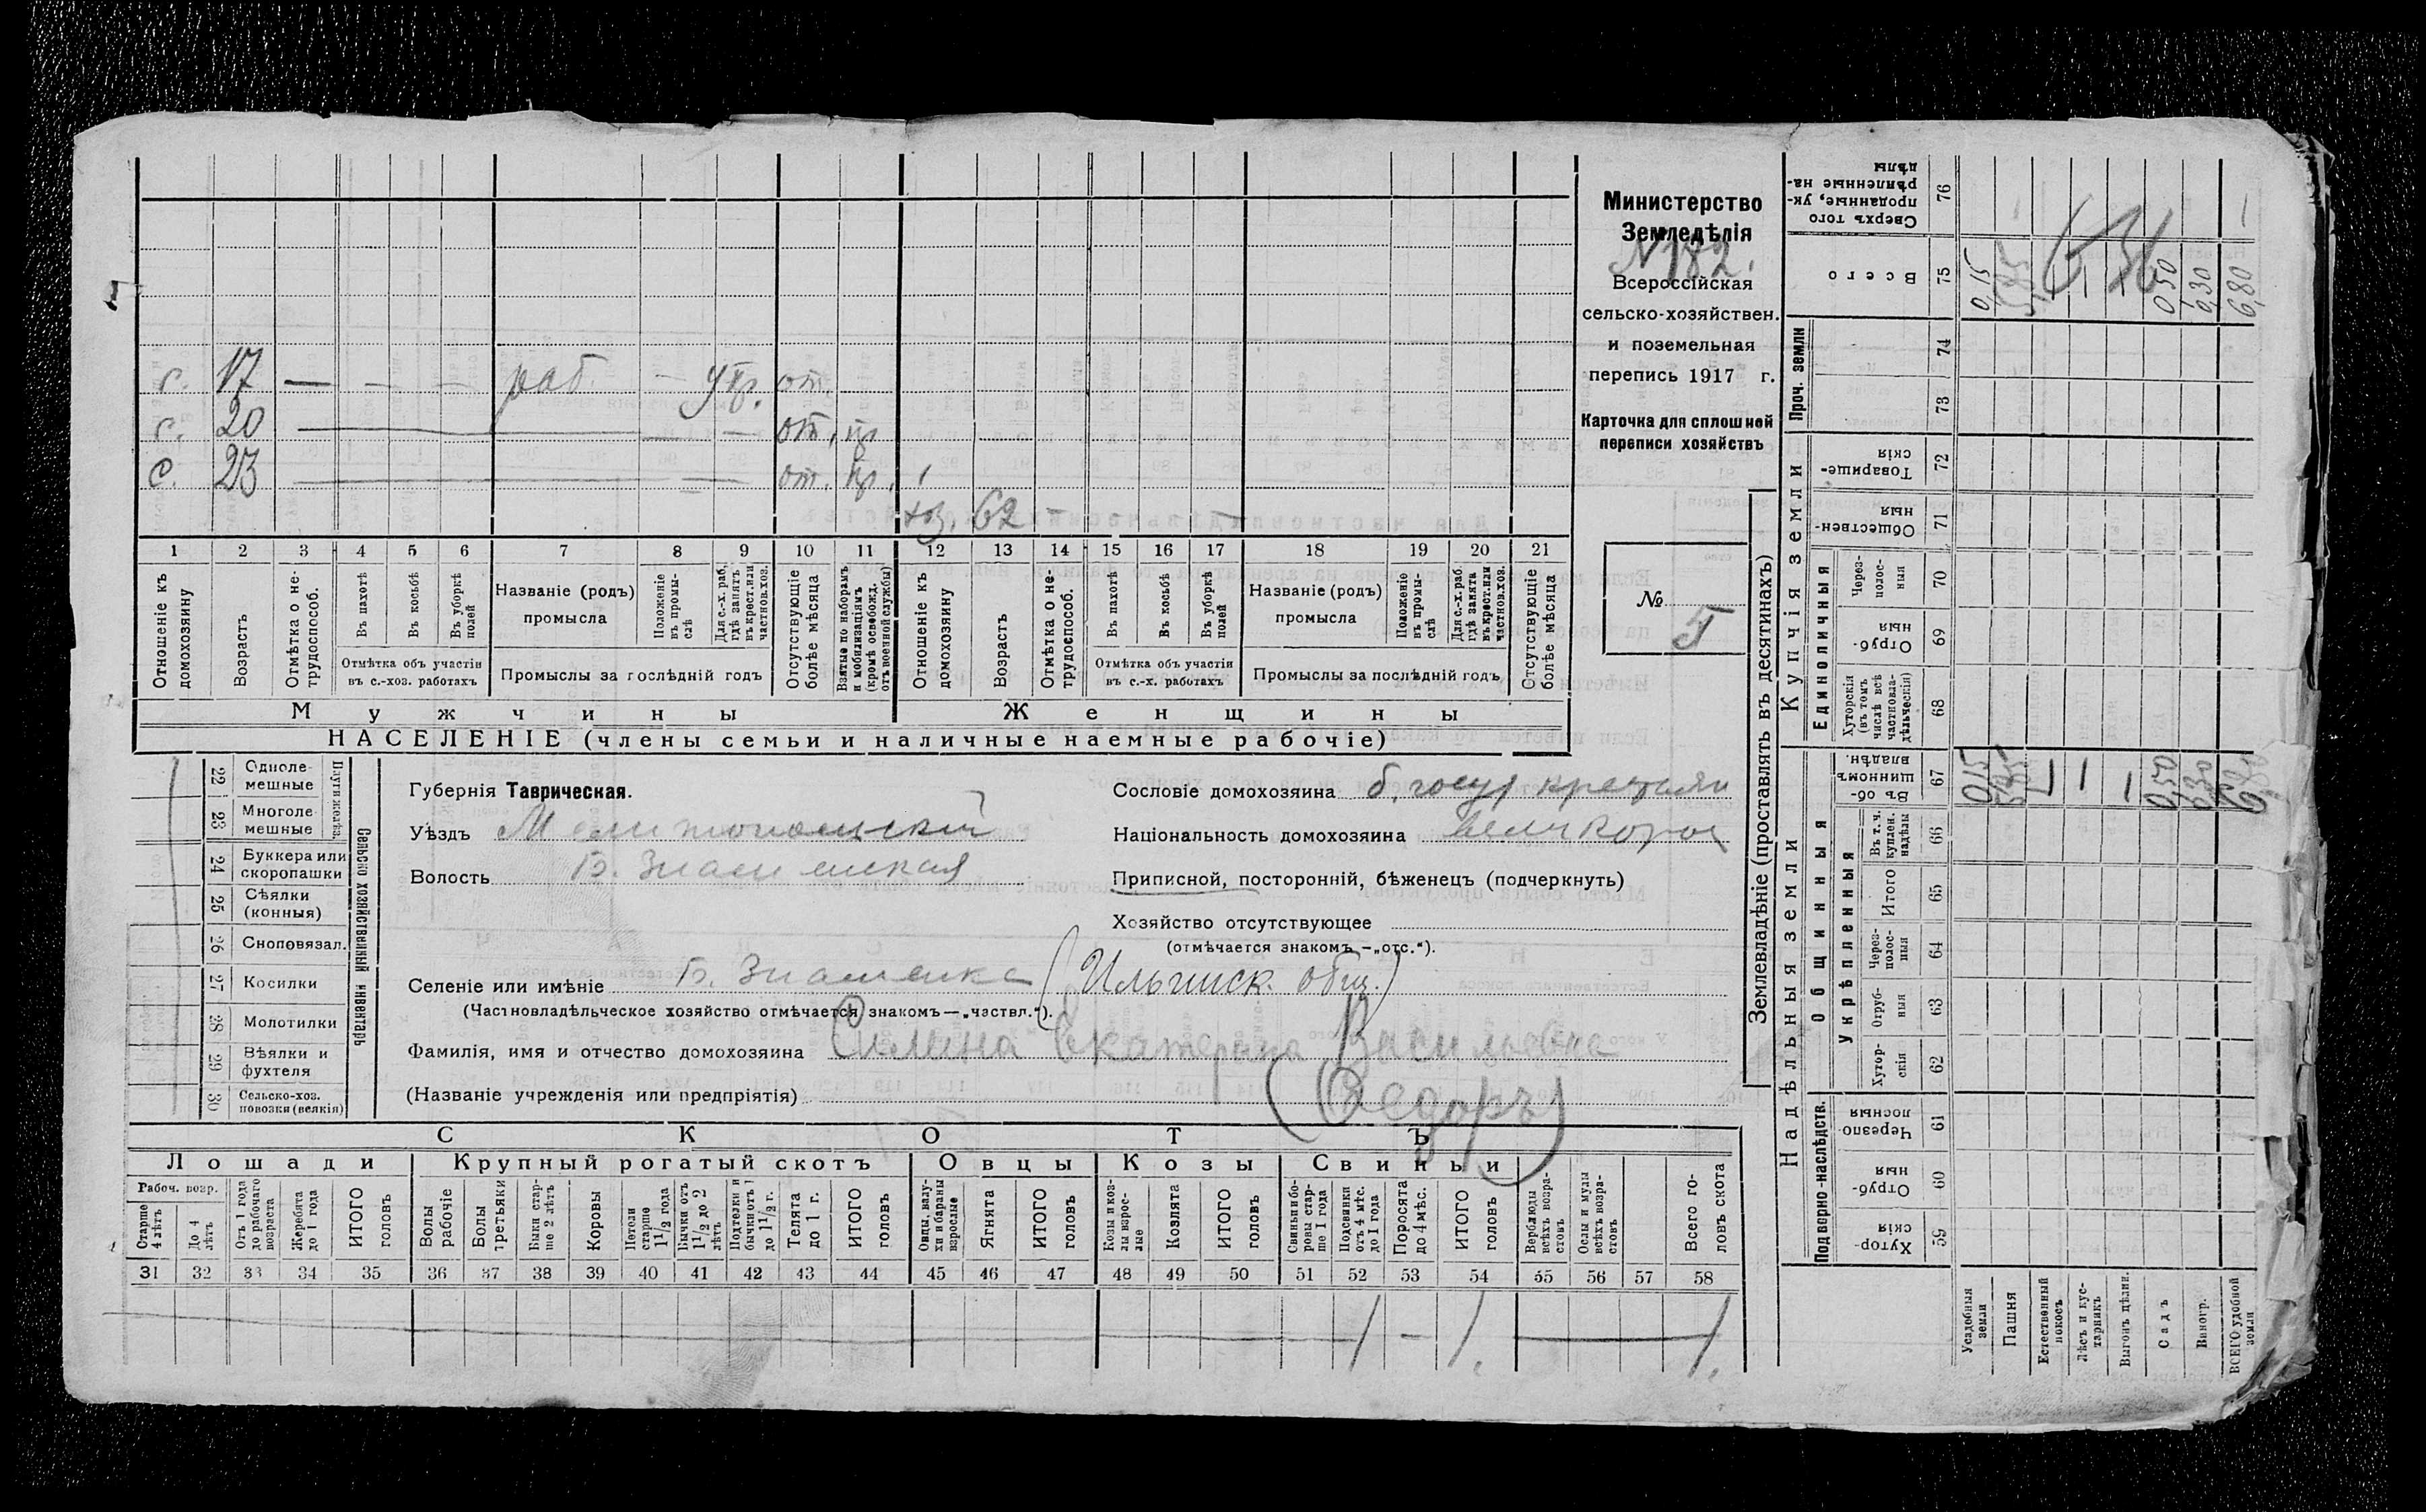 с. 17 — — — раб. — отъ
с. 20 — от. пр.
с. 23 — от. пр.
хз. 62 — — —
1 2 3 4 5 6 7 8 9 10 11 12 13 14 15 16 17 18 19 20 21
Отношеніе къ домохозяину
Возрастъ
Отмѣтка о не-трудоспособ.
Въ пахотѣ
Въ косьбѣ
Въ уборкѣ полей
Отмѣтка объ участіи въ с.-хоз. работахъ
Названіе (родъ) промысла
Положеніе въ промы-слѣ
Для с.-х. раб. гдѣ занятъ въ крест. или частнов. хоз.
Промыслы за послѣдній годъ
Отсутствующіе болѣе мѣсяца
Взятые по наборамъ и мобилизаціямъ (кромѣ освобожд. отъ военной службы)
Отношеніе къ домохозяину
Возрастъ
Отмѣтка о не-трудоспособ.
Въ пахотѣ
Въ косьбѣ
Въ уборкѣ полей
Отмѣтка объ участіи въ с.-х. работахъ
Названіе (родъ) промысла
Положеніе въ промы-слѣ
Для с.-х. раб. гдѣ занята въ крест. или частнов. хоз.
Промыслы за послѣдній годъ
Отсутствующіе болѣе мѣсяца
Мужчины
Женщины
НАСЕЛЕНІЕ (члены семьи и наличные наемные рабочіе)
Министерство
Земледѣлія
N 182.
Всероссійская
сельско-хозяйствен.
и поземельная
перепись 1917 г.
Карточка для сплошной
переписи хозяйствъ
№ 5
22 Одноле-мешные
23 Многоле-мешные
24 Буккера или скоропашки
25 Сѣялки (конныя)
26 Сноповязал.
27 Косилки
28 Молотилки
29 Вѣялки и фухтеля
30 Сельско-хоз. повозки (всякія)
Плуги желѣз.
Сельско хозяйственный инвентарь
Губернія Таврическая.
Уѣздъ Мелитопольскій
Волость Б. Знаменская
Сословіе домохозяина б. госуд крестьян
Національность домохозяина великорос
Приписной, посторонній, бѣженецъ (подчеркнуть)
Хозяйство отсутствующее
(отмѣчается знакомъ — „отс.“).
Селеніе или имѣніе Б. Знаменка (Ильинск. общ.)
(Частновладѣльческое хозяйство отмѣчается знакомъ — „частвл.“).
Фамилія, имя и отчество домохозяина Силина Екатерина Васильевна
(Названіе учрежденія или предпріятія) (Федоръ)
СКОТЪ
Лошади Крупный рогатый скотъ Овцы Козы Свиньи
Рабоч. возр.
Старше 4 лѣтъ
До 4 лѣтъ
Отъ 1 года до рабочаго возраста
Жеребята до 1 года
ИТОГО головъ
Волы рабочіе
Волы третьяки
Быки стар-ше 2 лѣтъ
Коровы
Нетели старше 1 1/2 года
Бычки отъ 1 1/2 до 2 лѣтъ
Подтелки и бычки отъ 1 до 1 1/2 г.
Телята до 1 г.
ИТОГО головъ
Овцы, валу-хи и бараны взрослые
Ягнята
ИТОГО головъ
Козы и коз-лы взрос-лые
Козлята
ИТОГО головъ
Свиньи и бо-ровы стар-ше 1 года
Подсвинки отъ 4 мѣс. до 1 года
Поросята до 4 мѣс.
ИТОГО головъ
Верблюды всѣхъ возра-стовъ
Ослы и мулы всѣхъ возра-стовъ
Всего го-ловъ скота
31 32 33 34 35 36 37 38 39 40 41 42 43 44 45 46 47 48 49 50 51 52 53 54 55 56 57 58
1 — 1. 1.
Землевладѣніе (проставлять въ десятинахъ)
Надѣльныя земли
Купчія земли
Проч. земли
Подворно-наслѣдств.
Общинныя
Укрѣпленныя
Единоличныя
Сверхъ того проданные, ук-рѣпленные на-дѣлы 76
Всего 75
74
73
Товарище-скія 72
Обществен-ныя 71
Через-полос-ныя 70
Отруб-ныя 69
Хуторскія (въ томъ числѣ всѣ частновла-дѣльческія) 68
Въ об-щинномъ владѣн. 67
Въ т. ч. куплен. надѣлы 66
Итого 65
Через-полос-ныя 64
Отруб-ныя 63
Хутор-скія 62
Черезпо-лосныя 61
Отруб-ныя 60
Хутор-скія 59
Усадебныя земли 0,15 0,15
Пашня
Естественный покосъ
Лѣсъ и кус-тарникъ
Выгонъ дѣлин.
Садъ 0,50 0,50
Виногр. 0,30 0,30
ВСЕГО удобной земли 6,80 6,80